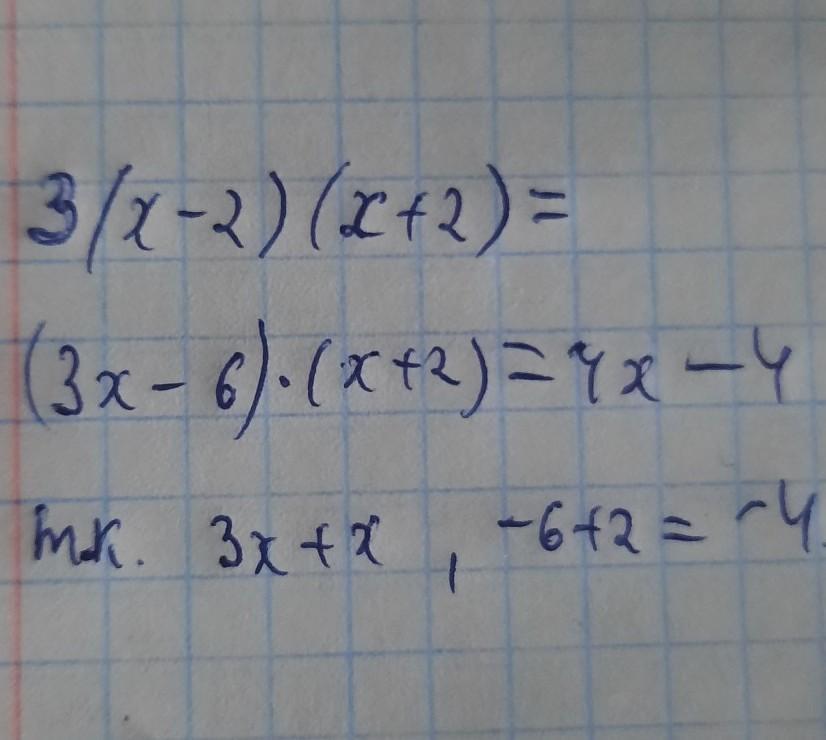 3(x-2)(x+2)=
(3x-6)·(x+2)=4x-4
т.к. 3x+x, -6+2=-4